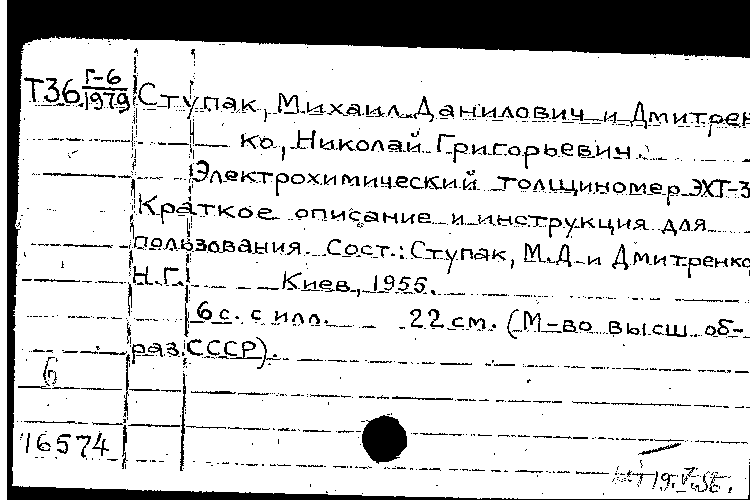 Т36 Г-6
1979
Ступак, Михаил Данилович и Дмитрен
ко, Николай Григорьевич.
Электрохимический толщиномер ЭХТ-3
Краткое описание и инструкция для
пользования. Сост.: Ступак, М.Д. и Дмитренко
Н.Г. Киев, 1955.
6 с. с илл. 22 см. (М-во высш. об-
раз. СССР).
б
16574